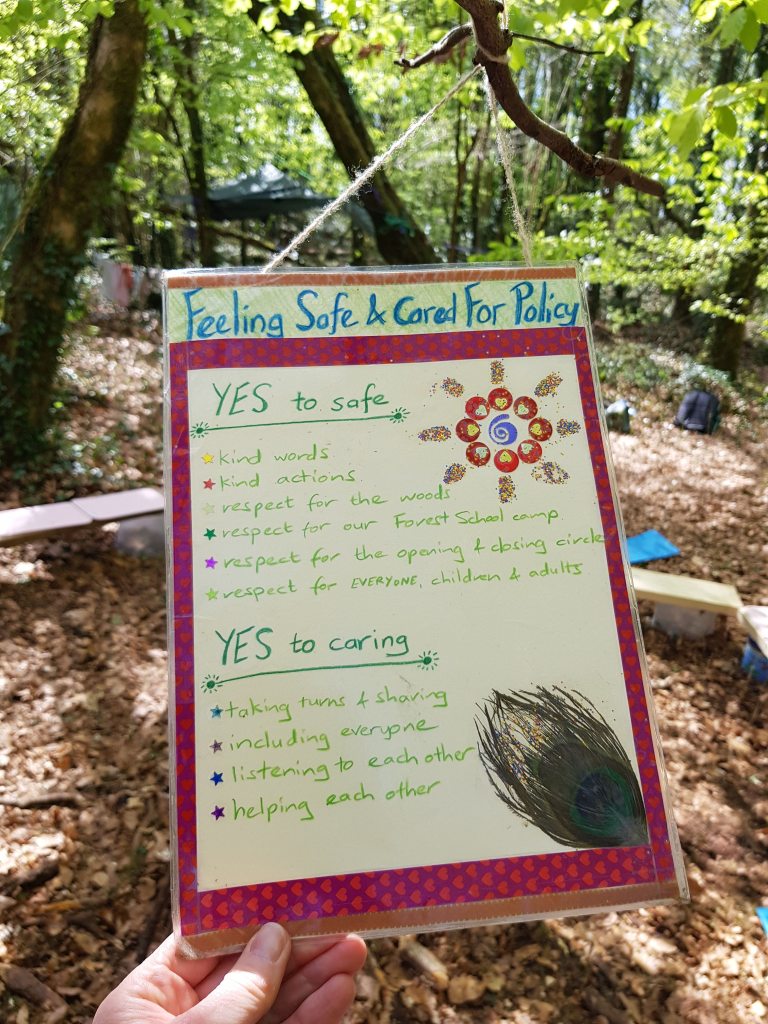 Feeling Safe & Cared For Policy
YES to safe
kind words
kind actions.
respect for the woods
respect for our Forest School camp
respect for the opening & closing circles
respect for EVERYONE, children & adults
YES to caring
taking turns & sharing
including everyone
listening to each other
helping each other